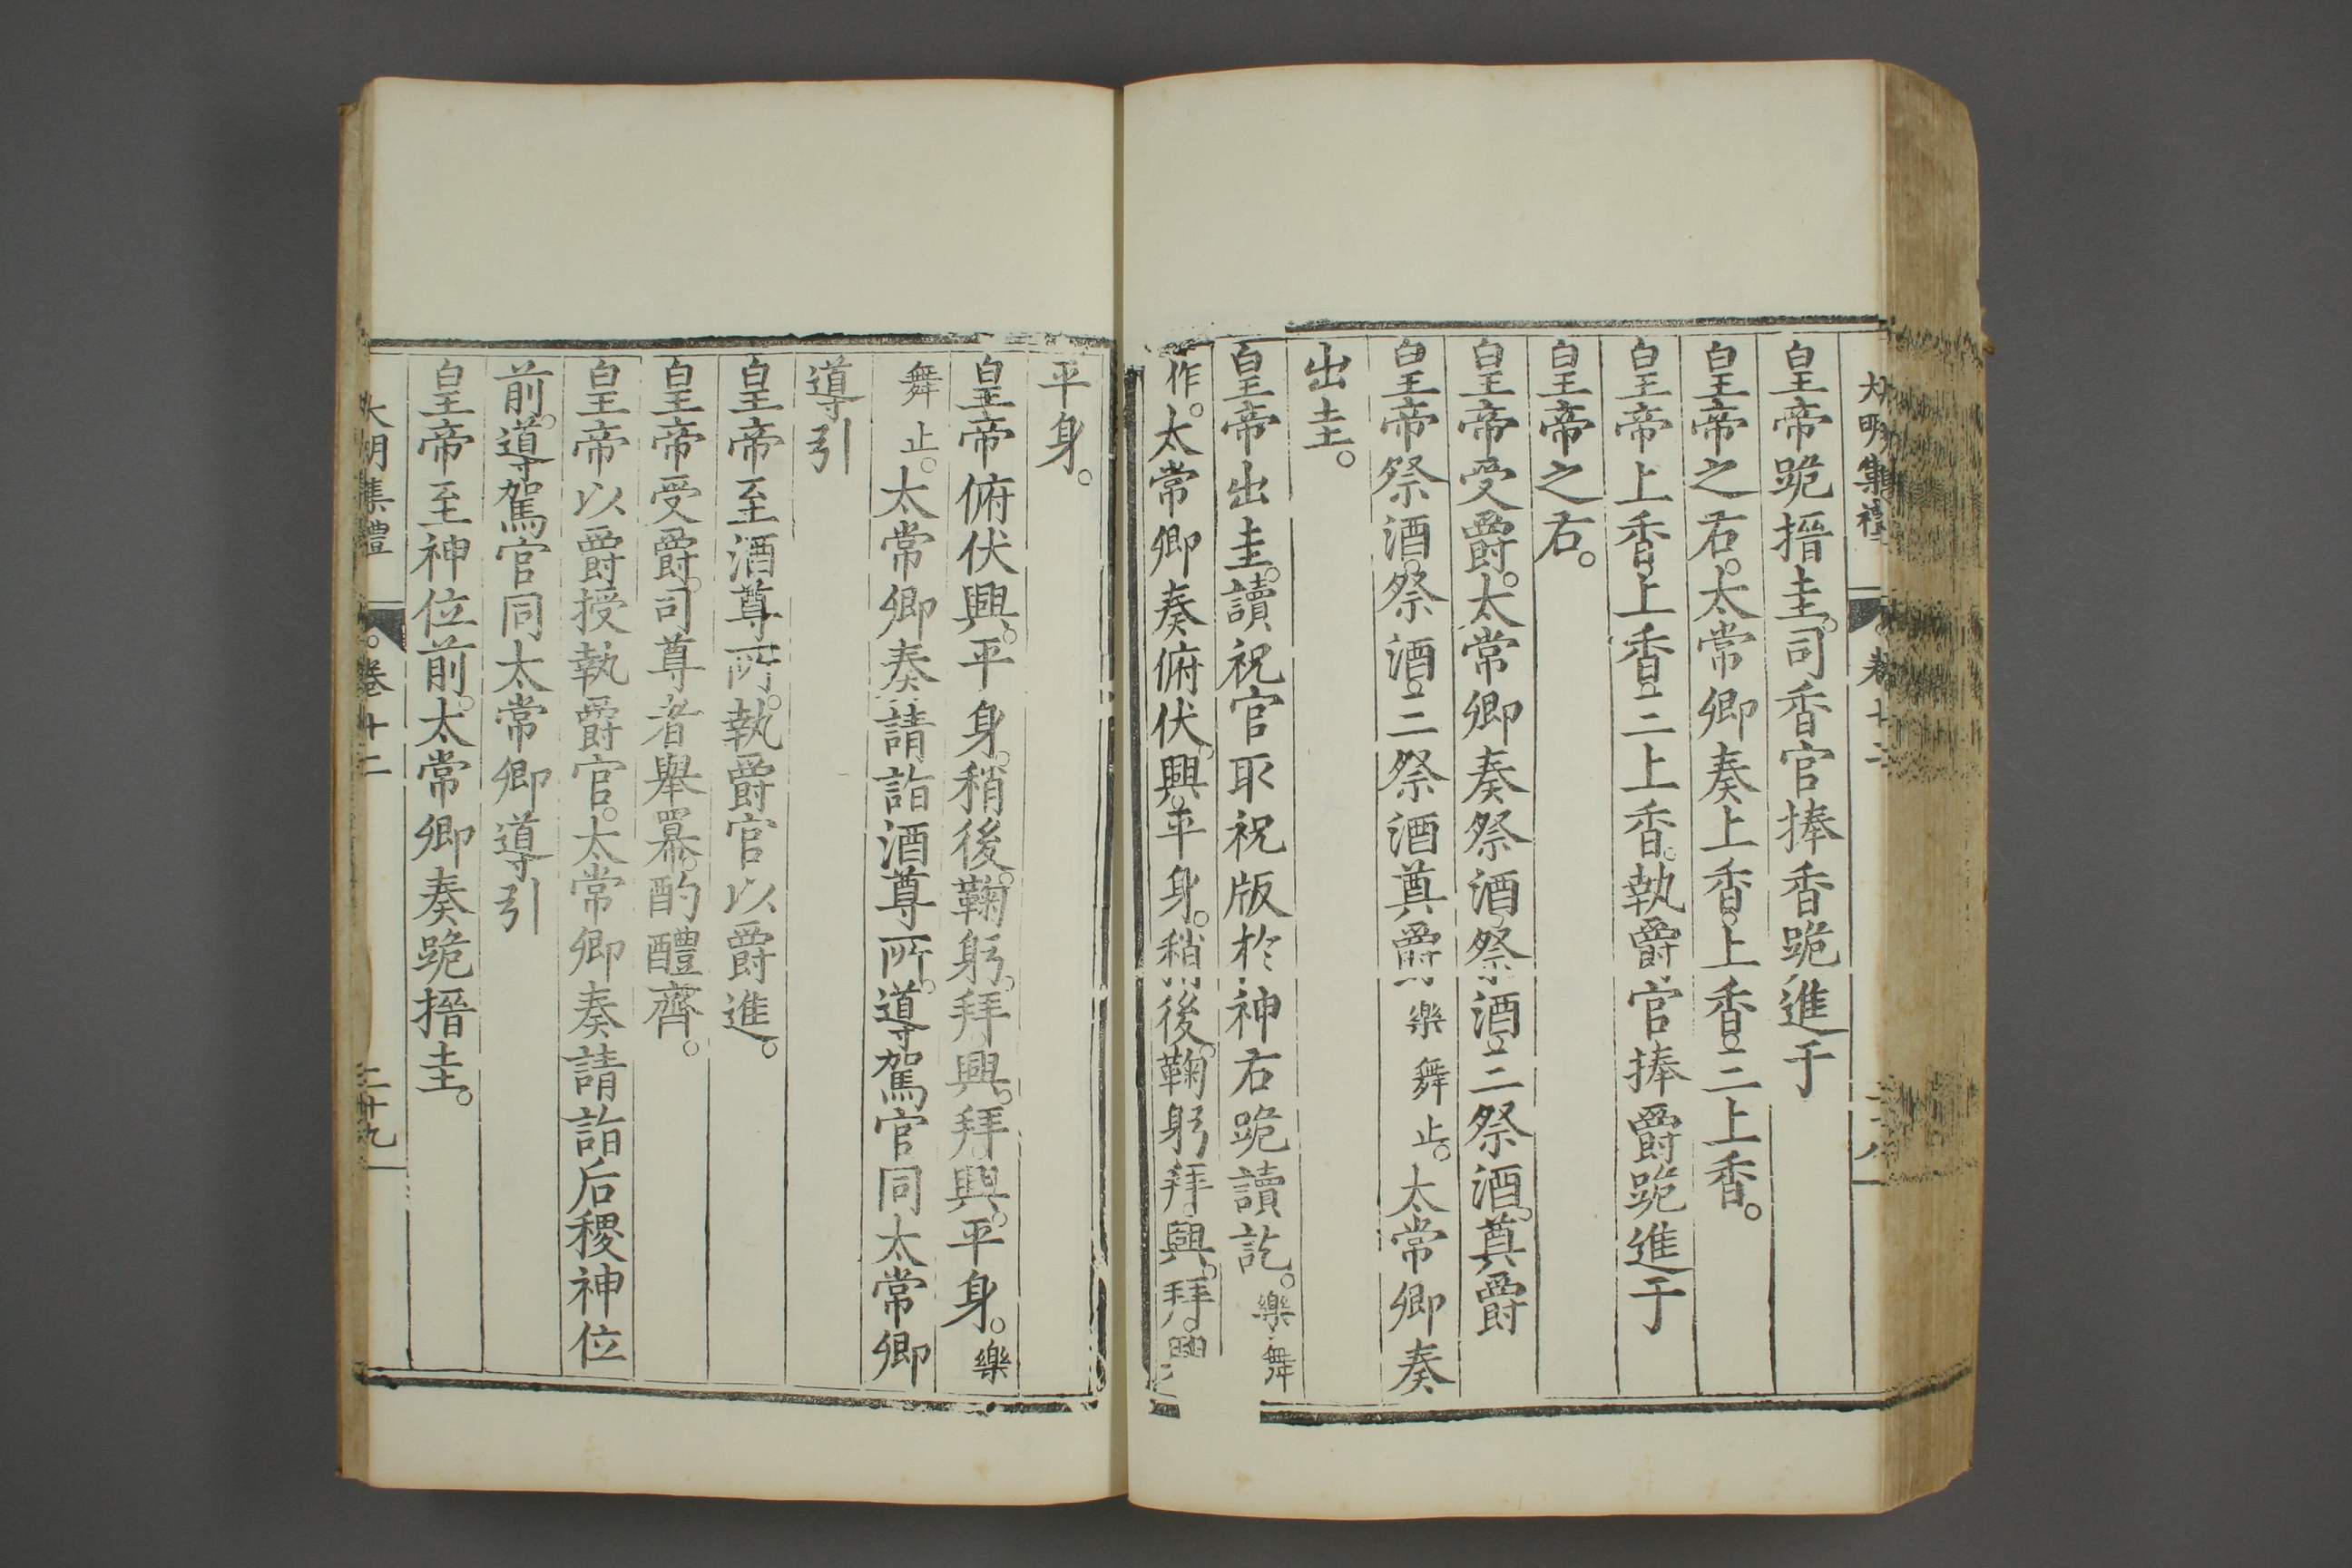 大明集禮 卷十二 二十八
皇帝跪搢圭。司香官捧香跪進于
皇帝之右。太常卿奏上香。上香。三上香。
皇帝上香。上香。三上香。執爵官捧爵跪進于
皇帝之右。
皇帝受爵。太常卿奏祭酒。祭酒。三祭酒。奠爵
皇帝祭酒。祭酒。三祭酒奠爵樂舞止。太常卿奏
出圭。
皇帝出圭。讀祝官取祝版於神右跪讀訖。樂舞
作。太常卿奏俯伏。興。平身。稍後。鞠躬。拜。興。拜。興
平身。
皇帝俯伏興。平身。稍後。鞠躬。拜。興。拜。興。平身。樂
舞止。太常卿奏請詣酒尊所。導駕官同太常卿
導引
皇帝至酒尊所。執爵官以爵進。
皇帝受爵。司尊者舉冪。酌醴齊。
皇帝以爵授執爵官。太常卿奏請詣后稷神位
前。導駕官同太常卿導引
皇帝至神位前。太常卿奏跪搢圭。
大明集禮 卷十二 二十九